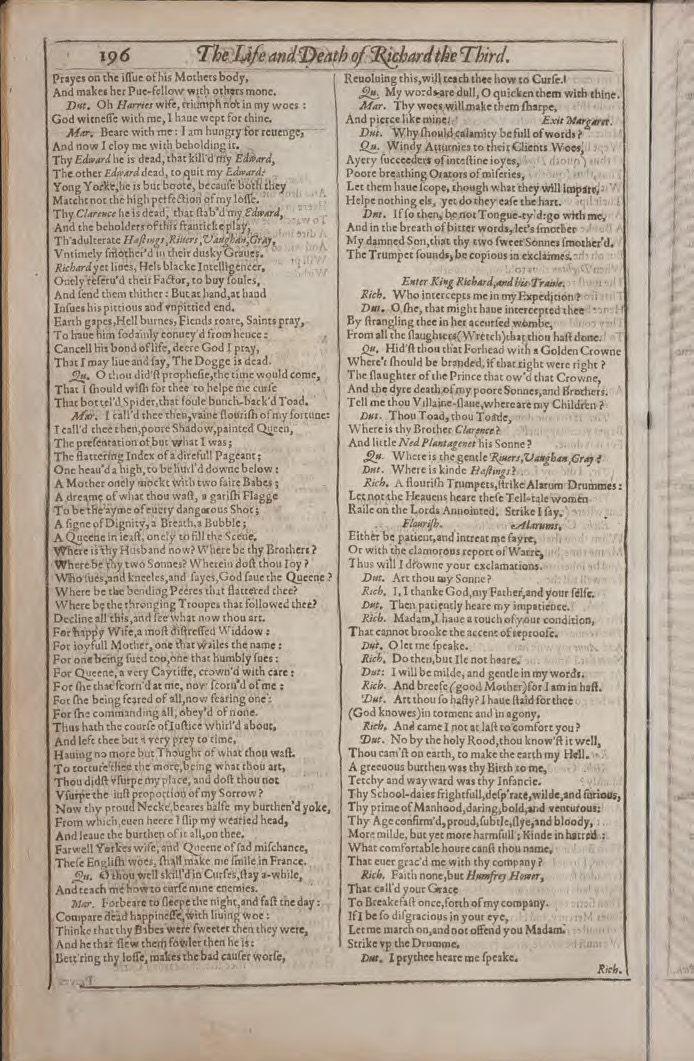 196 The Life and Death of Richard the Third.
Prayes on the iſſue of his Mothers body,
And makes her Pue-fellow with others mone.
Dut. Oh Harries wife, triumph not in my woes:
God witneſſe with me, I haue wept for thine.
Mar. Beare with me: I am hungry for reuenge,
And now I cloy me with beholding it.
Thy Edward he is dead, that kill'd my Edward,
The other Edward dead, to quit my Edward:
Yong Yorke, he is but boote, becauſe both they
Matcht not the high perfection of my loſſe.
Thy Clarence he is dead, that ſtab'd my Edward,
And the beholders of this franticke play,
Th'adulterate Haſtings, Riuers, Vaughan, Gray,
Vntimely ſmother'd in their dusky Graues.
Richard yet liues, Hels blacke Intelligencer,
Onely reſeru'd their Factor, to buy ſoules,
And ſend them thither: But at hand, at hand
Inſues his pittious and vnpittied end.
Earth gapes, Hell burnes, Fiends roare, Saints pray,
To haue him ſodainly conuey'd from hence:
Cancell his bond of life, deere God I pray,
That I may liue and ſay, The Dogge is dead.
Qu. O thou did'ſt propheſie, the time would come,
That I ſhould wiſh for thee to helpe me curſe
That bottel'd Spider, that foule bunch-back'd Toad.
Mar. I call'd thee then, vaine flouriſh of my fortune:
I call'd thee then, poore Shadow, painted Queen,
The preſentation of but what I was;
The flattering Index of a direfull Pageant;
One heau'd a high, to be hurl'd downe below:
A Mother onely mockt with two faire Babes;
A dreame of what thou waſt, a gariſh Flagge
To be the ayme of euery dangerous Shot;
A ſigne of Dignity, a Breath, a Bubble;
A Queene in ieaſt, onely to fill the Scene.
Where is thy Husband now? Where be thy Brothers?
Where be thy two Sonnes? Wherein doſt thou Ioy?
Who ſues, and kneeles, and ſayes, God ſaue the Queene?
Where be the bending Peeres that flattered thee?
Where be the thronging Troupes that followed thee?
Decline all this, and ſee what now thou art.
For happy Wife, a moſt diſtreſſed Widdow:
For ioyfull Mother, one that wailes the name:
For one being ſued too, one that humbly ſues:
For Queene, a very Caytiffe, crown'd with care:
For ſhe that ſcorn'd at me, now ſcorn'd of me:
For ſhe being feared of all, now fearing one:
For ſhe commanding all, obey'd of none.
Thus hath the courſe of Iuſtice whirl'd about,
And left thee but a very prey to time,
Hauing no more but Thought of what thou waſt.
To torture thee the more, being what thou art,
Thou didſt vſurpe my place, and doſt thou not
Vſurpe the iuſt proportion of my Sorrow?
Now thy proud Necke, beares halfe my burthen'd yoke,
From which, euen heere I ſlip my wearied head,
And leaue the burthen of it all, on thee.
Farwell Yorkes wife, and Queene of ſad miſchance,
Theſe Engliſh woes, ſhall make me ſmile in France.
Qu. O thou well skill'd in Curſes, ſtay a-while,
And teach me how to curſe mine enemies.
Mar. Forbeare to ſleepe the night, and faſt the day:
Compare dead happineſſe, with liuing woe:
Thinke that thy Babes were ſweeter then they were,
And he that ſlew them fowler then he is:
Bett'ring thy loſſe, makes the bad cauſer worſe,
Reuoluing this, will teach thee how to Curſe.
Qu. My words are dull, O quicken them with thine.
Mar. Thy woes will make them ſharpe,
And pierce like mine. Exit Margaret.
Dut. Why ſhould calamity be full of words?
Qu. Windy Atturnies to their Clients Woes,
Ayery ſucceeders of inteſtine ioyes,
Poore breathing Orators of miſeries,
Let them haue ſcope, though what they will impart,
Helpe nothing els, yet do they eaſe the hart.
Dut. If ſo then, be not Tongue-ty'd: go with me,
And in the breath of bitter words, let's ſmother
My damned Son, that thy two ſweet Sonnes ſmother'd.
The Trumpet ſounds, be copious in exclaimes.
Enter King Richard, and his Traine.
Rich. Who intercepts me in my Expedition?
Dut. O ſhe, that might haue intercepted thee
By ſtrangling thee in her accurſed wombe,
From all the ſlaughters (Wretch) that thou haſt done.
Qu. Hid'ſt thou that Forhead with a Golden Crowne
Where't ſhould be branded, if that right were right?
The ſlaughter of the Prince that ow'd that Crowne,
And the dyre death of my poore Sonnes, and Brothers.
Tell me thou Villaine-ſlaue, where are my Children?
Dut. Thou Toad, thou Toade,
Where is thy Brother Clarence?
And little Ned Plantagenet his Sonne?
Qu. Where is the gentle Riuers, Vaughan, Gray?
Dut. Where is kinde Haſtings?
Rich. A flouriſh Trumpets, ſtrike Alarum Drummes:
Let not the Heauens heare theſe Tell-tale women
Raile on the Lords Annointed. Strike I ſay.
Flouriſh. Alarums.
Either be patient, and intreat me fayre,
Or with the clamorous report of Warre,
Thus will I drowne your exclamations.
Dut. Art thou my Sonne?
Rich. I, I thanke God, my Father, and your ſelfe.
Dut. Then patiently heare my impatience.
Rich. Madam, I haue a touch of your condition,
That cannot brooke the accent of reproofe.
Dut. O let me ſpeake.
Rich. Do then, but Ile not heare.
Dut: I will be milde, and gentle in my words.
Rich. And breefe (good Mother) for I am in haſt.
Dut. Art thou ſo haſty? I haue ſtaid for thee
(God knowes) in torment and in agony.
Rich. And came I not at laſt to comfort you?
Dut. No by the holy Rood, thou know'ſt it well,
Thou cam'ſt on earth, to make the earth my Hell.
A greeuous burthen was thy Birth to me,
Tetchy and wayward was thy Infancie.
Thy School-daies frightfull, deſp'rate, wilde, and furious,
Thy prime of Manhood, daring, bold, and venturous:
Thy Age confirm'd, proud, ſubtle, ſlye, and bloody,
More milde, but yet more harmfull; Kinde in hatred:
What comfortable houre canſt thou name,
That euer grac'd me with thy company?
Rich. Faith none, but Humfrey Hower,
That call'd your Grace
To Breakefaſt once, forth of my company.
If I be ſo diſgracious in your eye,
Let me march on, and not offend you Madam.
Strike vp the Drumme.
Dut. I prythee heare me ſpeake.
Rich.